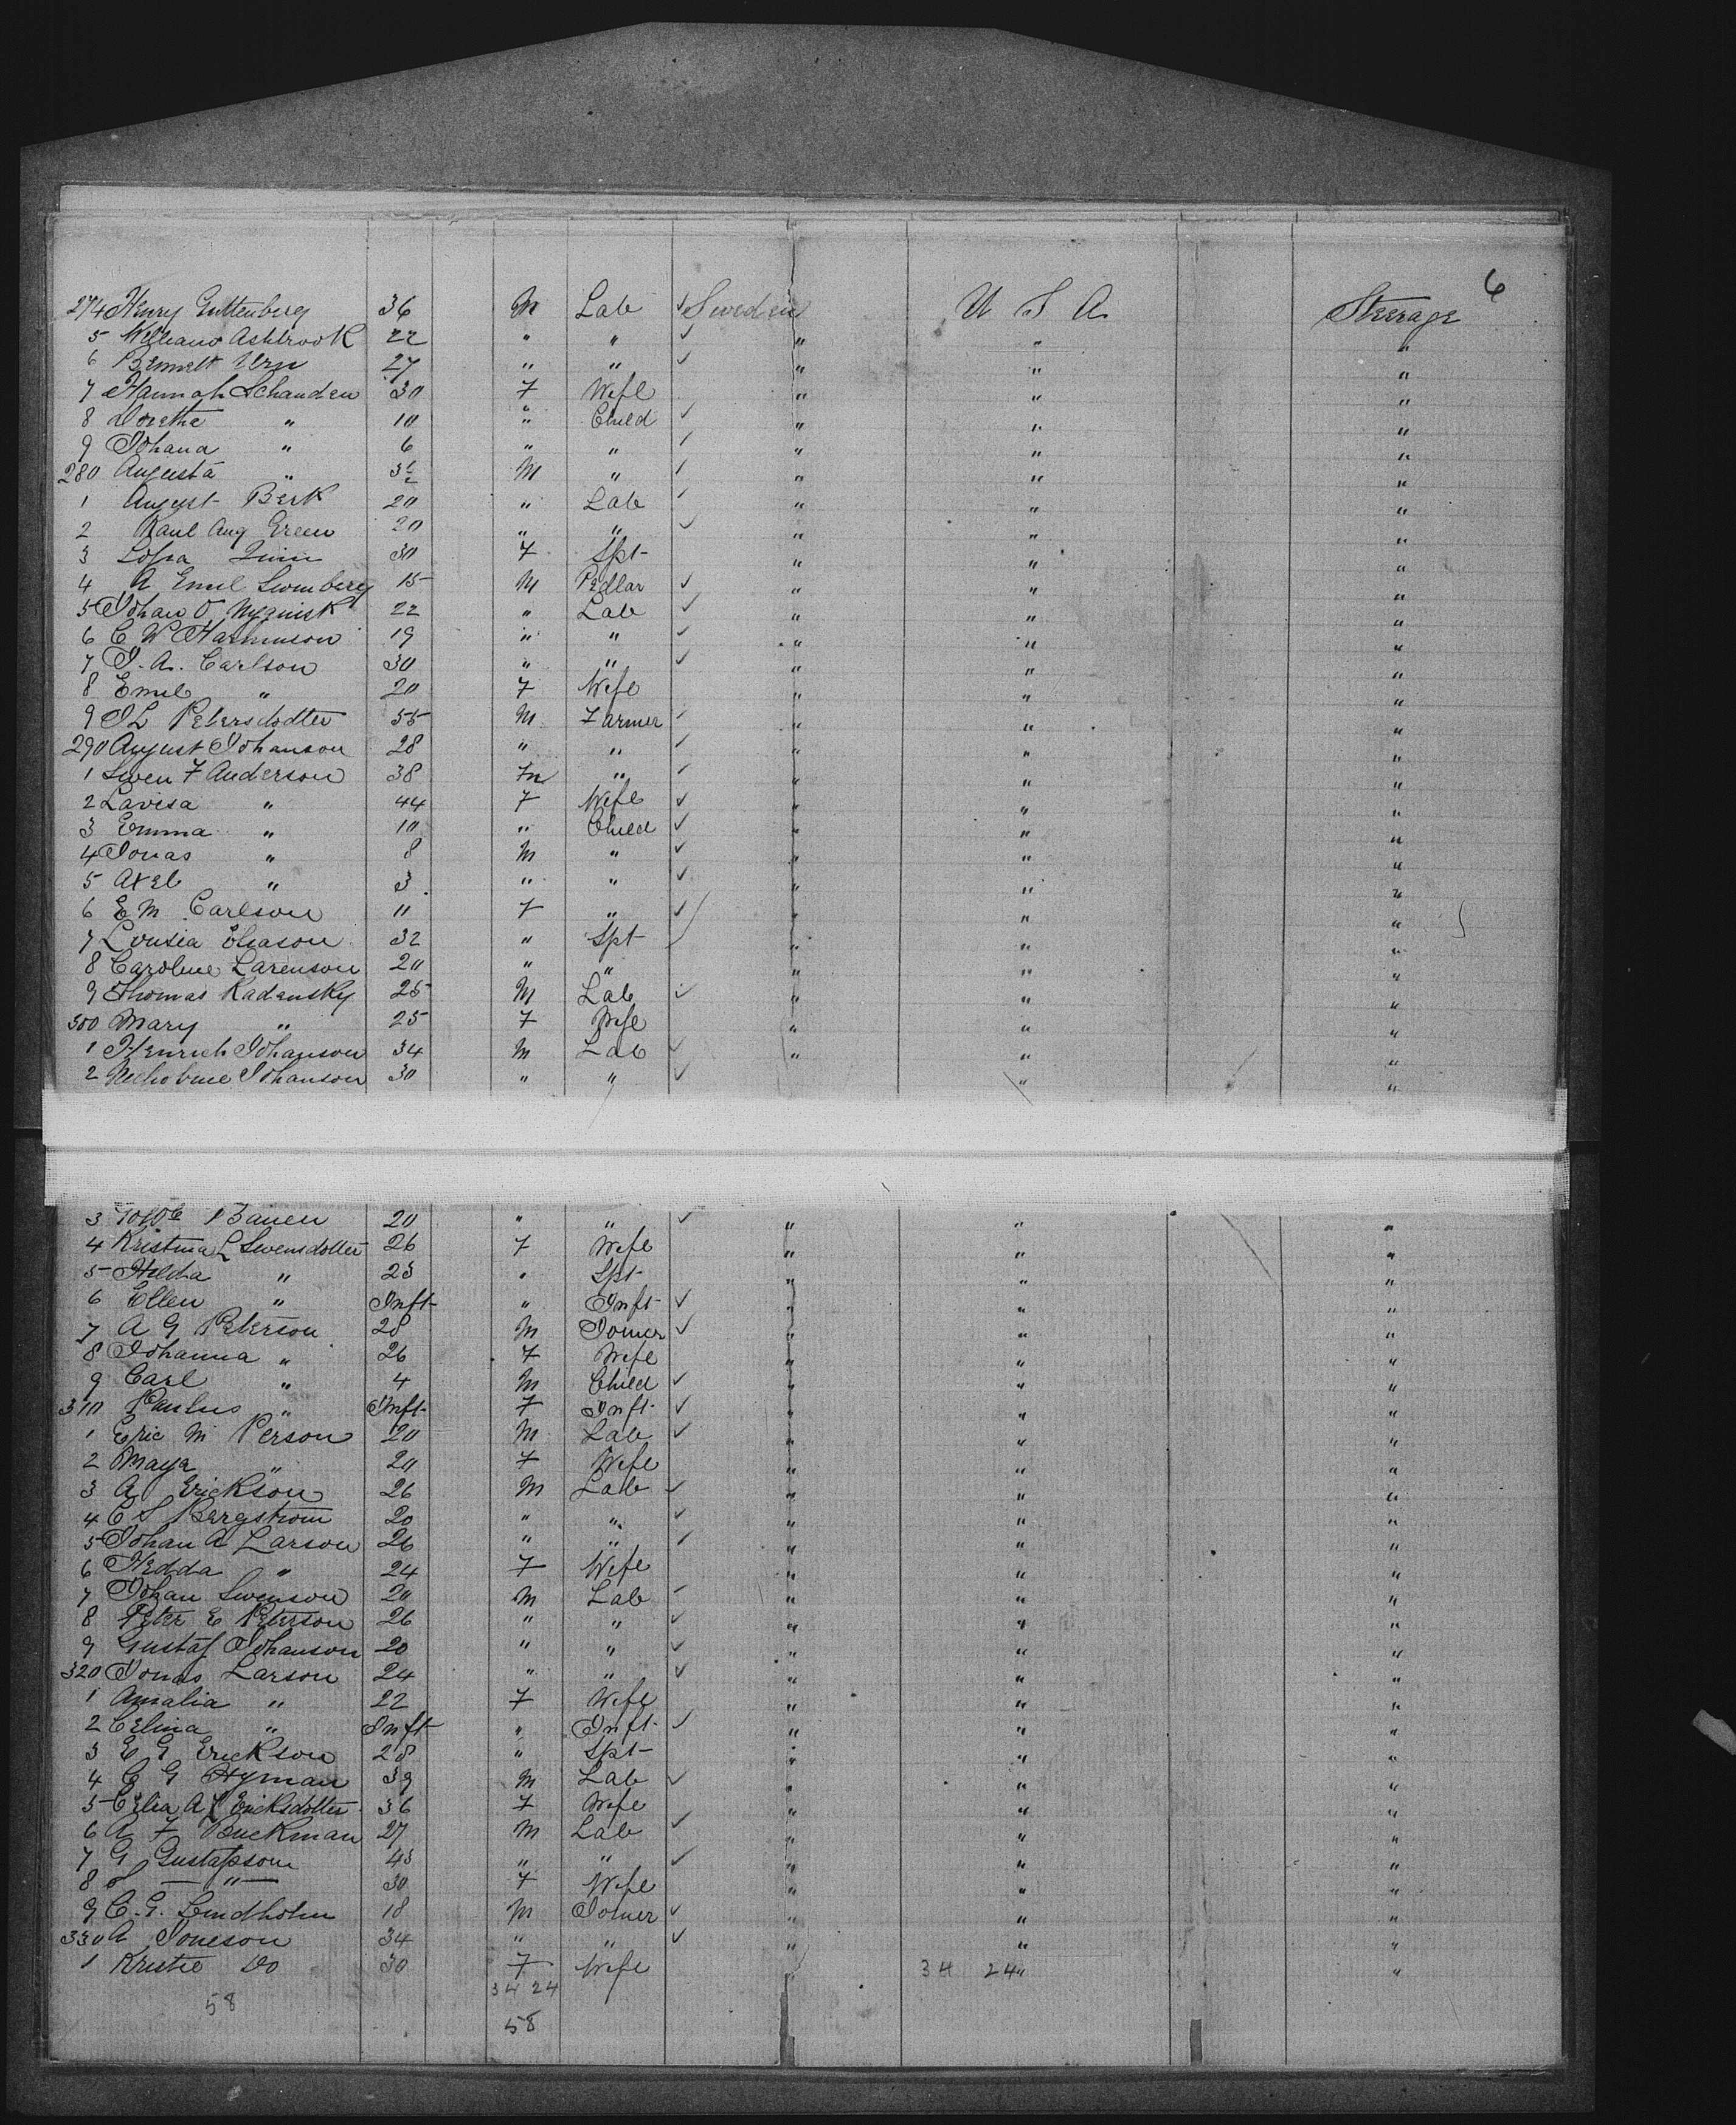 6
274 Henry Guttenberg 36 M Lab ✓ Sweden U S A Steerage
5 William Ashbrook 22 " " ✓ " " "
6 Bennett 27 " " ✓ " " "
7 Hannah Schanden 30 F Wife " " "
8 Doretha " 10 " Child ✓ " " "
9 Johana " 6 " " ✓ " " "
280 Augusta " M " ✓ " " "
1 August Berk 20 " Lab ✓ " " "
2 Karl Aug Green 20 " " ✓ " " "
3 Sofia 30 F Spt " " "
4 A Emil 15 M Pedlar ✓ " " "
5 Johan O Nyquist 22 " Lab ✓ " " "
6 C W Harmuson 19 " " ✓ " " "
7 J. A. Carlson 30 " " ✓ " " "
8 Emil " 20 F Wife " " "
9 J L Petersdodter 55 M Farmer ✓ " " "
290 August Johanson 28 " " ✓ " " "
1 Swen F Anderson 38 M " ✓ " " "
2 Lavisa " 44 F Wife ✓ " " "
3 Emma " 10 " Child ✓ " " "
4 Jonas " 8 M " ✓ " " "
5 Axel " 3 " " ✓ " " "
6 E M Carlson 11 F " ✓ " " "
7 Lousia Eliason 32 " Spt " " "
8 Caroline Larenson 20 " " " " "
9 Thomas Radensky 25 M Lab ✓ " " "
300 Mary " 25 F Wife " " "
1 Henrich Johanson 34 M Lab ✓ " " "
2 Johanson 30 " " ✓ " "
3 20 " " ✓ " " "
4 Kristina L Swensdotter 26 F Wife " " "
5 Hilda " 23 " Spt " " "
6 Ellen " Inft " Inft ✓ " " "
7 A G Peterson 28 M Joiner ✓ " " "
8 Johanna " 26 F Wife " " "
9 Carl " 4 M Child ✓ " " "
310 Paulus " Inft F Inft ✓ " " "
1 Eric M Person 20 M Lab ✓ " " "
2 Maya " 20 F Wife " " "
3 A Erickson 26 M Lab ✓ " " "
4 C S Bergstrom 20 " " ✓ " " "
5 Johan A Larson 26 " " ✓ " " "
6 Hedda " 24 F Wife " " "
7 Johan Swenson 20 M Lab ✓ " " "
8 Peter E Peterson 26 " " ✓ " " "
9 Gustaf Johanson 20 " " ✓ " " "
320 Jonas Larson 24 " " ✓ " " "
1 Amalia " 22 F Wife " " "
2 Celina " Inft " Inft ✓ " " "
3 E G Erickson 28 " Spt " " "
4 C G Hyman 39 M Lab ✓ " " "
5 Celia A L Ericksdotter 36 F Wife " " "
6 A F Buckman 27 M Lab ✓ " " "
7 G Gustafsson 43 " " ✓ " " "
8 " 30 F Wife " " "
9 C. G. Lindholm 18 M Joiner ✓ " " "
330 A Joneson 34 " " ✓ " " "
1 Kristie Do 30 F Wife 34 24 " "
34 24
58
58